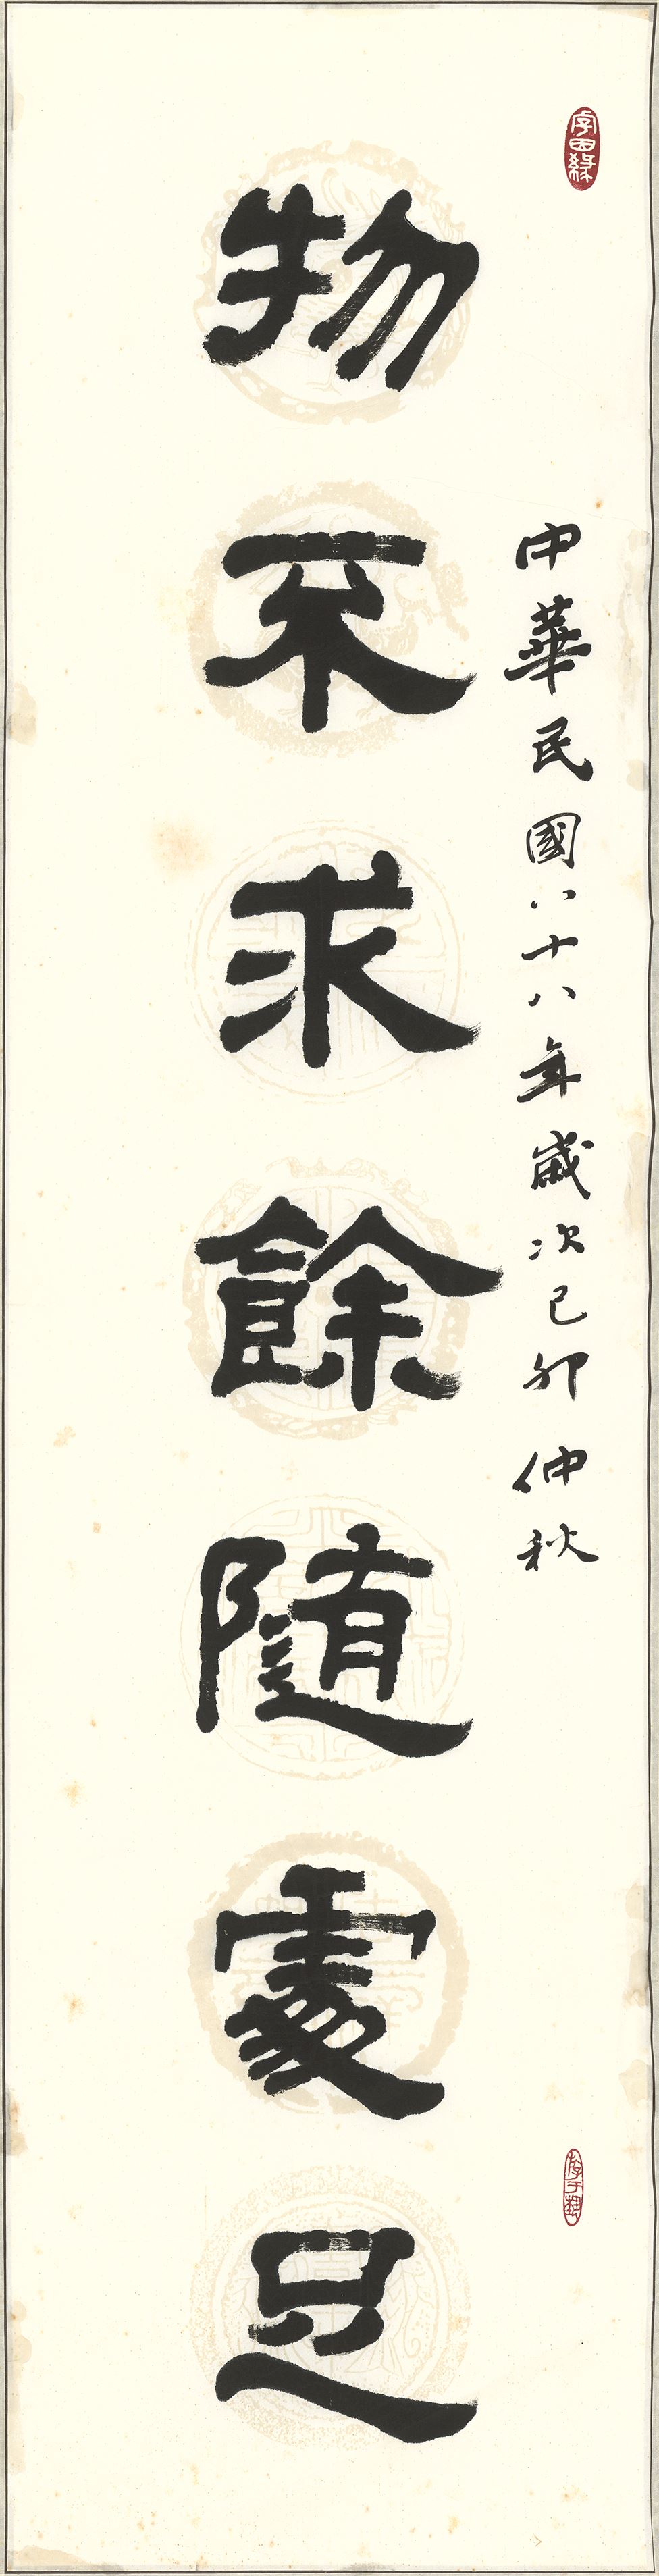 中華民國八十八年歲次己卯仲秋
物不求餘隨處足